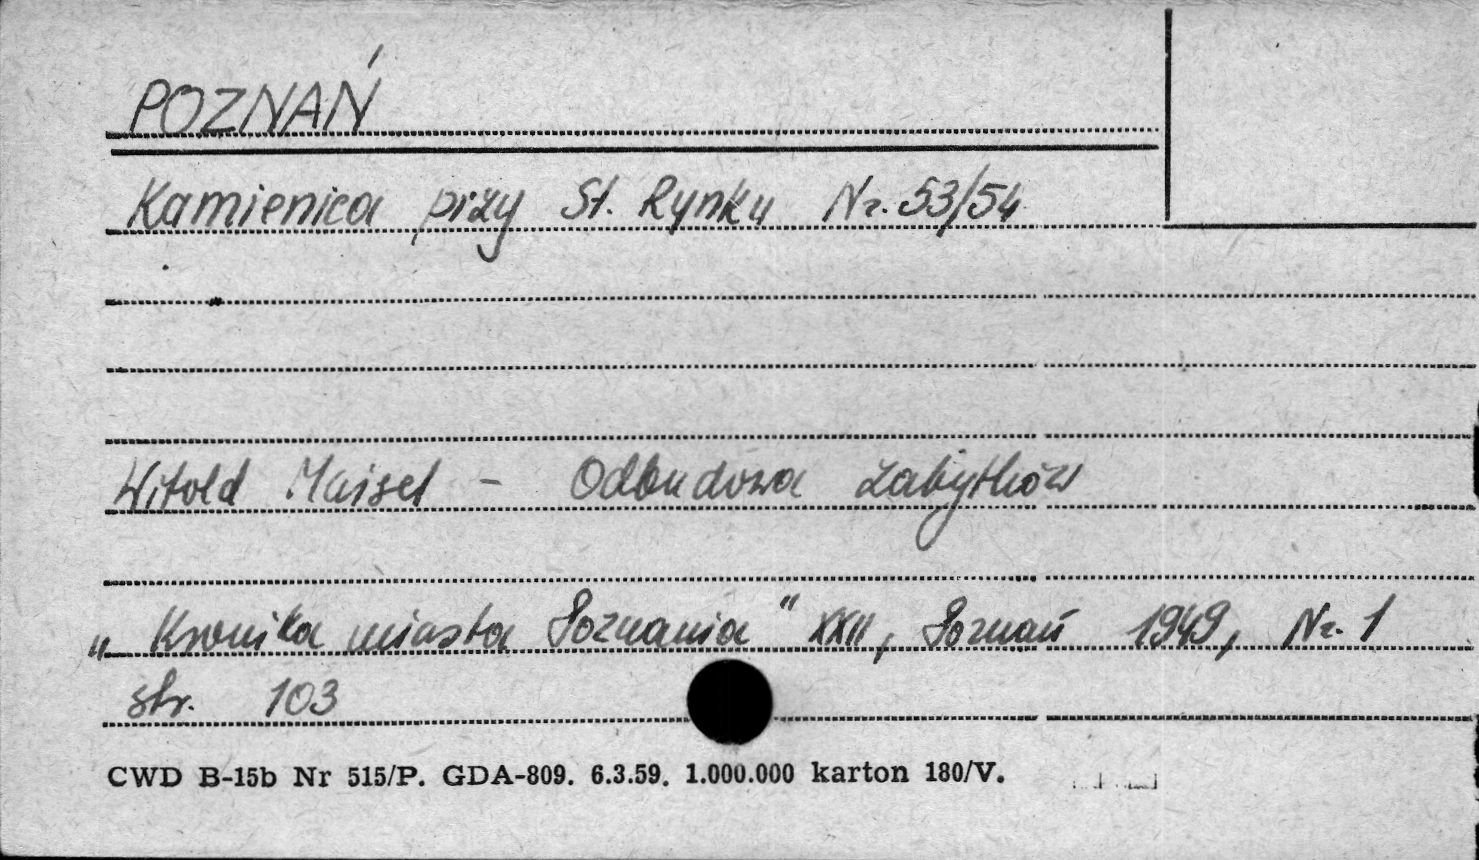 POZNAŃ
Kamienica przy St. Rynku Nr. 53/54
Witold Maisel - Odbudowa zabytków
„Kronika miasta Poznania" XXII, Poznań 1949, Nr. 1
str. 103
CWD B-15b Nr 515/P. GDA-809. 6.3.59. 1.000.000 karton 180/V.